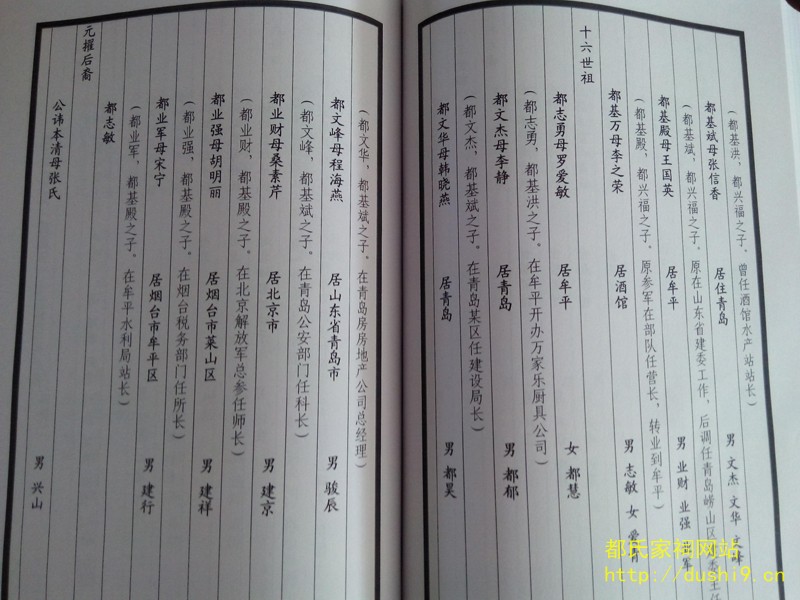 (都基洪,都兴福之子。曾任酒馆水产站站长)
都基斌母张信香 居住青岛 男 文杰 文华 文峰
(都基斌,都兴福之子。原在山东省建委工作,后调任青岛崂山区
都基殿母王国英 居牟平 男 业财 业强 业军
(都基殿,都兴福之子。原参军在部队任营长,转业到牟平)
都基万母李之荣 居酒馆 男 志敏 女 爱
十六世祖
都志勇母罗爱敏 居牟平 女 都慧
(都志勇,都基洪之子。在牟平开办万家乐厨具公司)
都文杰母李静 居青岛 男 都郁
(都文杰,都基斌之子。在青岛某区任建设局长)
都文华母韩晓燕 居青岛 男 都昊
(都文华,都基斌之子。在青岛房房地产公司总经理)
都文峰母程海燕 居山东省青岛市 男 骏辰
(都文峰,都基斌之子。在青岛公安部门任科长)
都业财母桑素芹 居北京市 男 建京
(都业财,都基殿之子。在北京解放军总参任师长)
都业强母胡明丽 居烟台市莱山区 男 建祥
(都业强,都基殿之子。在烟台税务部门任所长)
都业军母宋宁 居烟台市牟平区 男 建行
(都业军,都基殿之子。在牟平水利局站长)
都志敏
元擢后裔
公讳本清母张氏 男 兴山
都氏家祠网站
http://dushi9.cn